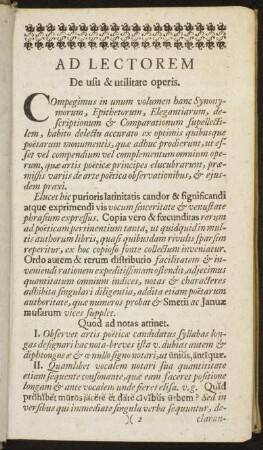 AD LECTOREM
De usu & utilitate operis.
COmpegimus in unum volumen hanc Synony-
morum, Epithetorum, Elegantiarum, de-
scriptionum & Comparationum supellecti-
lem, habito delectu accurato ex optimis quibusque
poëtarum monumentis, quæ adhuc prodierunt, ut es-
set vel compendium vel complementum omnium ope-
rum, quæ artis poëticæ principes elucubrarunt, præ-
missis variis de arte poëtica observationibus, & ejus-
dem praxi.
Elucet hic purioris latinitatis candor & significandi
atque exprimendi vis vocum sinceritate & venustate
phrasium expressus. Copia vero & fœcunditas rerum
ad poëticam pertinentium tanta, ut quidquid in mul-
tis authorum libris, quasi quibusdam rivulis sparsim
reperitur, ex hoc copioso fonte collectum inveniatur.
Ordo autem & rerum distributio facilitatem & in-
veniendi rationem expeditissimam ostendit, adjecimus
quantitatum omnium indices, notas & characteres
adhibita singulari diligentia, addita etiam poëtarum
authoritate, quæ numeros probat & Smetii ac Januæ
musarum vices supples.
Quod ad notas attinet.
I. Observet artis poëticæ candidatus syllabas lon-
gas designari hac nota- breves ista v. dubias autem &
diphtongos æ & œ nullo signo notari, ut ūnītīs, āntīquæ.
II. Quamlibet vocalem notari sua quantitate
etiam sequente consonante, quæ eam faceret positione
longam & ante vocalem unde fieret elisa. v. g. Quid
prŏhĭbĕt mūrōs jăcĕrĕ ĕt dărĕ cīvĭbŭs ŭrbem? Sed in
versibus qui immediate singula verba sequuntur, de-
)( 2 claran-